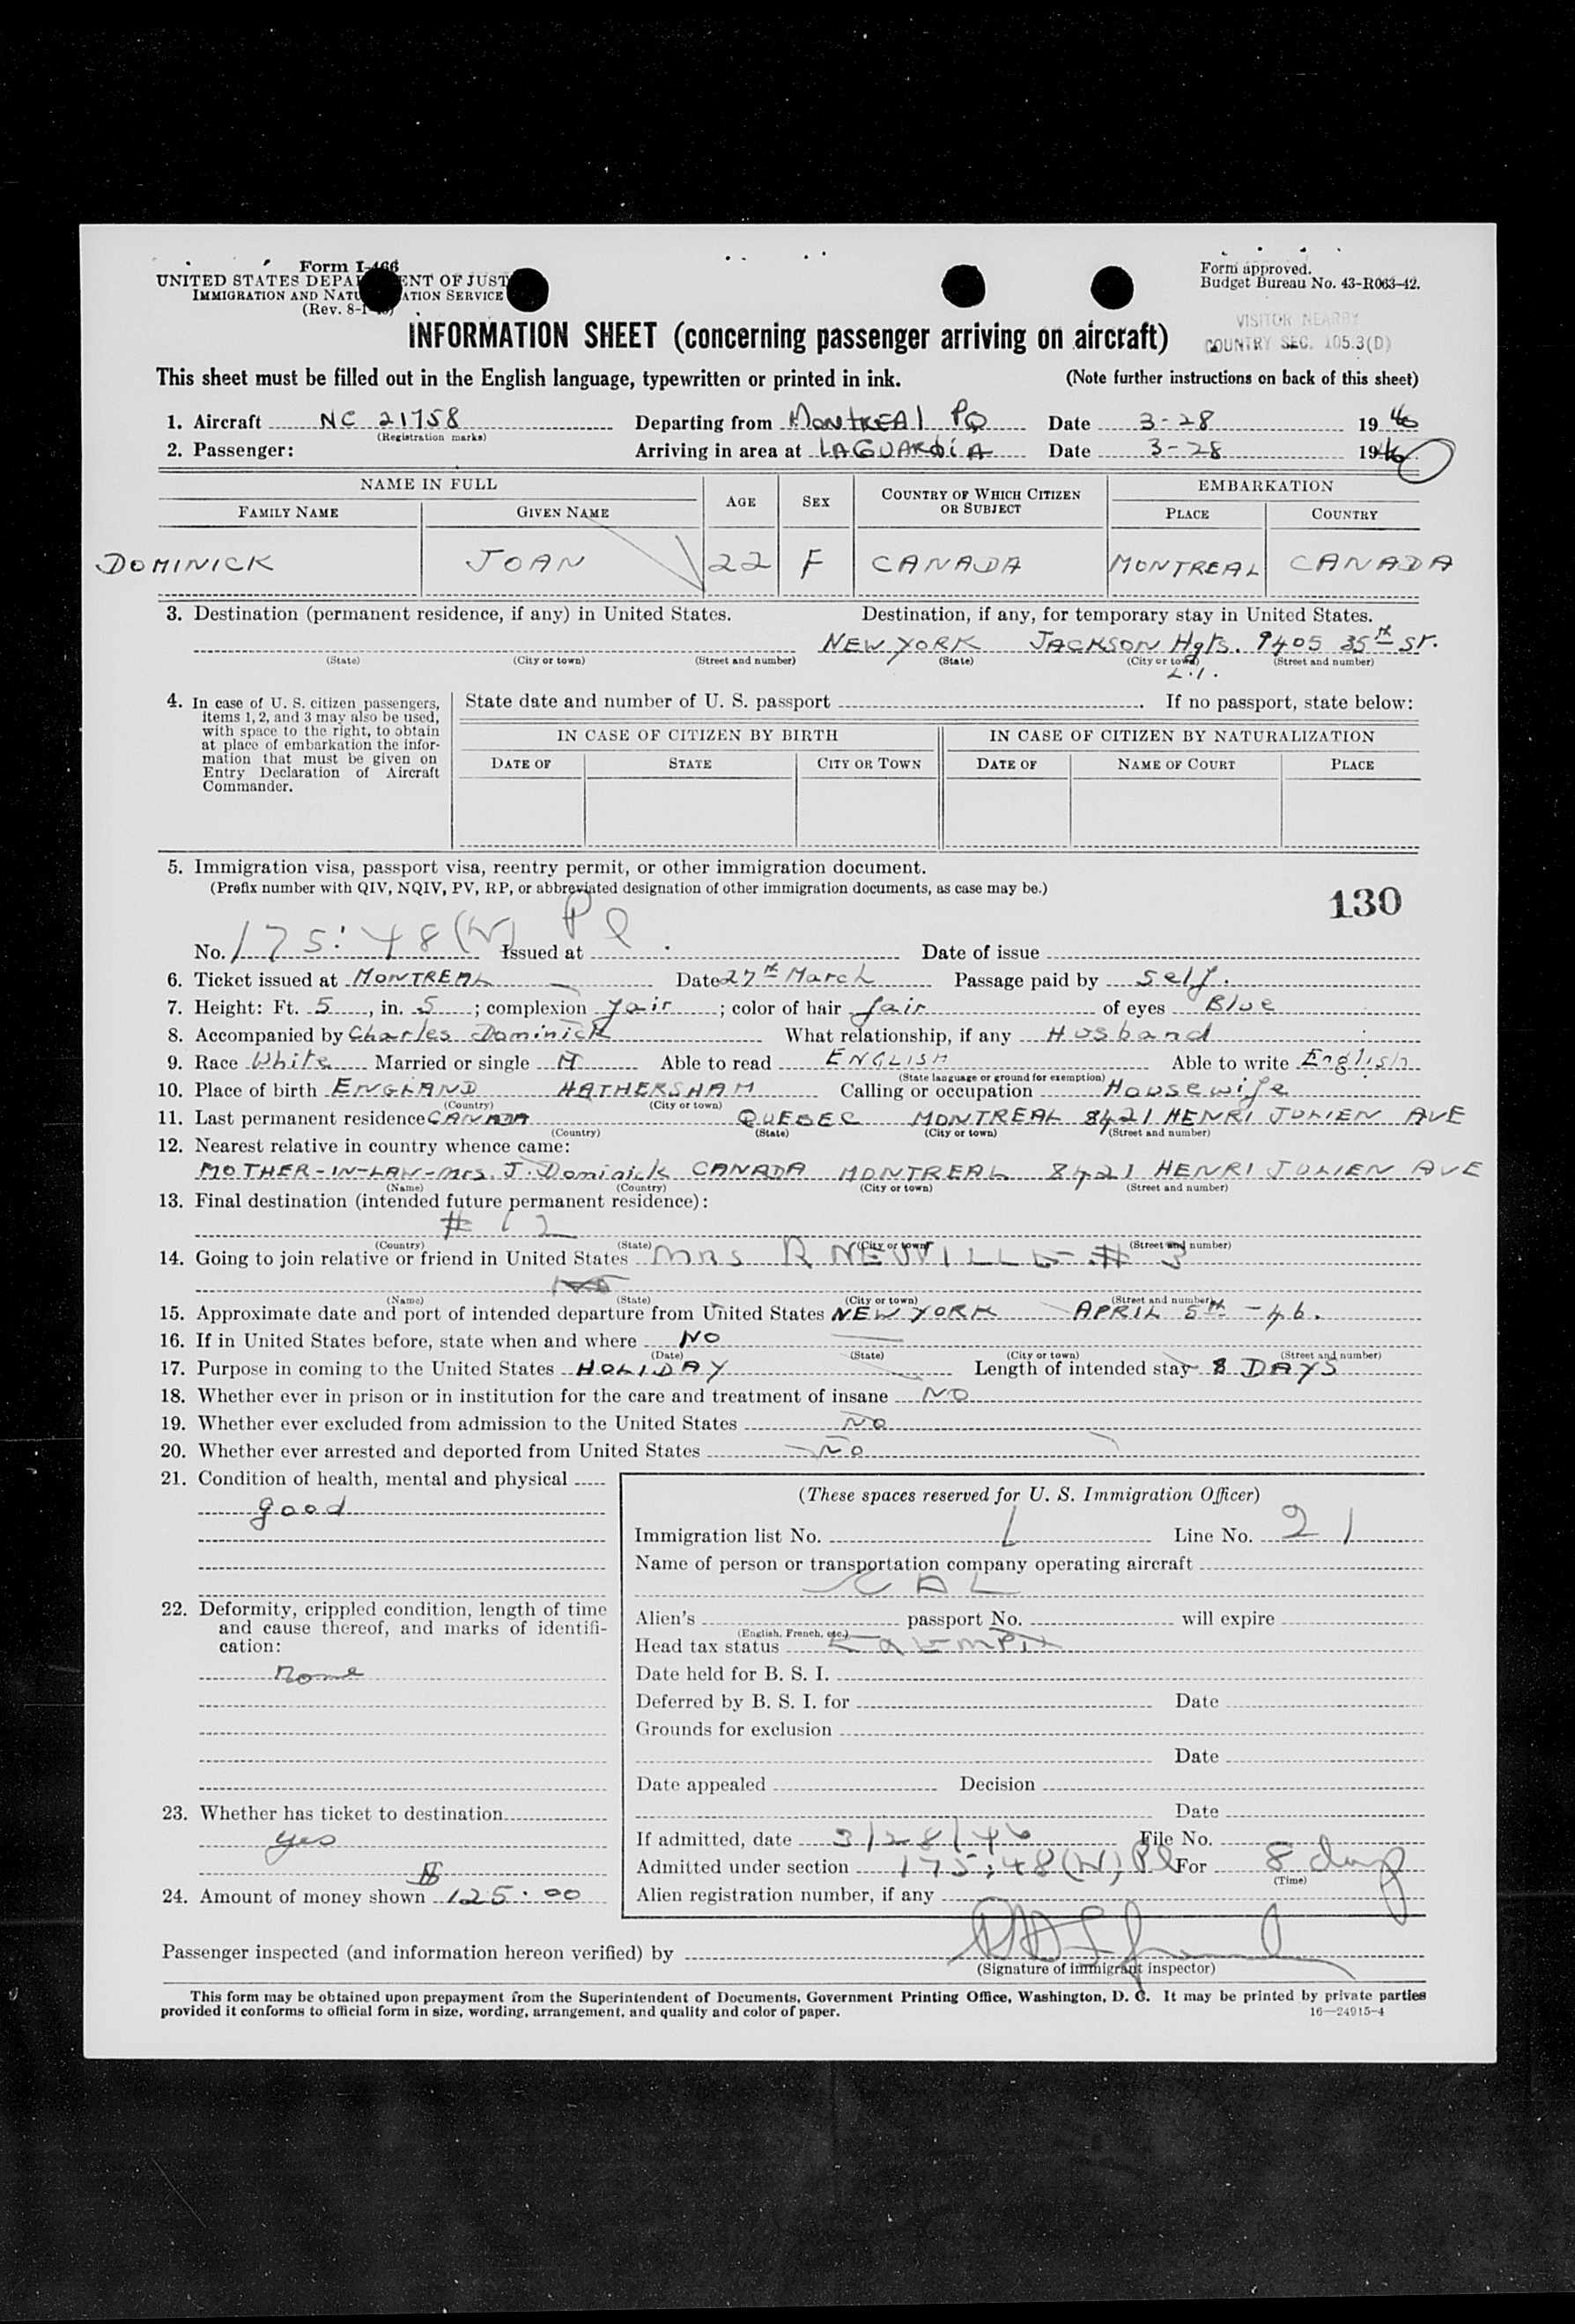 Form I-466
UNITED STATES DEPARTMENT OF JUSTICE
IMMIGRATION AND NATURALIZATION SERVICE
(Rev. 8-1-45)
Form approved.
Budget Bureau No. 43-R063-42.
INFORMATION SHEET (concerning passenger arriving on aircraft)
VISITOR NEARBY
COUNTRY SEC. 105.3(D)
This sheet must be filled out in the English language, typewritten or printed in ink. (Note further instructions on back of this sheet)
1. Aircraft NC 21758 Departing from MONTREAL PQ Date 3-28 1946
(Registration marks)
2. Passenger: Arriving in area at LAGUARDIA Date 3-28 1946
NAME IN FULL AGE SEX COUNTRY OF WHICH CITIZEN OR SUBJECT EMBARKATION
FAMILY NAME GIVEN NAME PLACE COUNTRY
DOMINICK JOAN 22 F CANADA MONTREAL CANADA
3. Destination (permanent residence, if any) in United States. Destination, if any, for temporary stay in United States.
NEW YORK JACKSON Hgts. 9405 35th St.
(State) (City or town) (Street and number) (State) (City or town) (Street and number)
L.I.
4. In case of U. S. citizen passengers, items 1, 2, and 3 may also be used, with space to the right, to obtain at place of embarkation the information that must be given on Entry Declaration of Aircraft Commander.
State date and number of U. S. passport . If no passport, state below:
IN CASE OF CITIZEN BY BIRTH IN CASE OF CITIZEN BY NATURALIZATION
DATE OF STATE CITY OR TOWN DATE OF NAME OF COURT PLACE
5. Immigration visa, passport visa, reentry permit, or other immigration document.
(Prefix number with QIV, NQIV, PV, RP, or abbreviated designation of other immigration documents, as case may be.)
130
No. 175:48(W) Pl Issued at Date of issue
6. Ticket issued at MONTREAL Date 27th March Passage paid by Self.
7. Height: Ft. 5, in. 5; complexion fair; color of hair fair of eyes Blue
8. Accompanied by Charles Dominick What relationship, if any Husband
9. Race White Married or single M Able to read ENGLISH Able to write English
(State language or ground for exemption)
10. Place of birth ENGLAND HATHERSHAM Calling or occupation Housewife
(Country) (City or town)
11. Last permanent residence CANADA QUEBEC MONTREAL 8421 HENRI JULIEN AVE
(Country) (State) (City or town) (Street and number)
12. Nearest relative in country whence came:
MOTHER-IN-LAW-Mrs. J. Dominick CANADA MONTREAL 8421 HENRI JULIEN AVE
(Name) (Country) (City or town) (Street and number)
13. Final destination (intended future permanent residence):
# 12
(Country) (State) (City or town) (Street and number)
14. Going to join relative or friend in United States MRS R NEWILLE # 3
(Name) (State) (City or town) (Street and number)
15. Approximate date and port of intended departure from United States NEW YORK APRIL 5th -46.
16. If in United States before, state when and where NO
(Date) (State) (City or town) (Street and number)
17. Purpose in coming to the United States HOLIDAY Length of intended stay 8 DAYS
18. Whether ever in prison or in institution for the care and treatment of insane NO
19. Whether ever excluded from admission to the United States NO
20. Whether ever arrested and deported from United States NO
21. Condition of health, mental and physical
good
22. Deformity, crippled condition, length of time and cause thereof, and marks of identification:
None
23. Whether has ticket to destination
yes
24. Amount of money shown $ 125.00
(These spaces reserved for U. S. Immigration Officer)
Immigration list No. 1 Line No. 21
Name of person or transportation company operating aircraft
CAL
Alien's passport No. will expire
(English, French, etc.)
Head tax status Exempt
Date held for B. S. I.
Deferred by B. S. I. for Date
Grounds for exclusion
Date
Date appealed Decision
Date
If admitted, date 3/28/46 File No.
Admitted under section 175:48(W) Pl For 8 days
(Time)
Alien registration number, if any
Passenger inspected (and information hereon verified) by
(Signature of immigrant inspector)
This form may be obtained upon prepayment from the Superintendent of Documents, Government Printing Office, Washington, D. C. It may be printed by private parties
provided it conforms to official form in size, wording, arrangement, and quality and color of paper. 16—24915-4